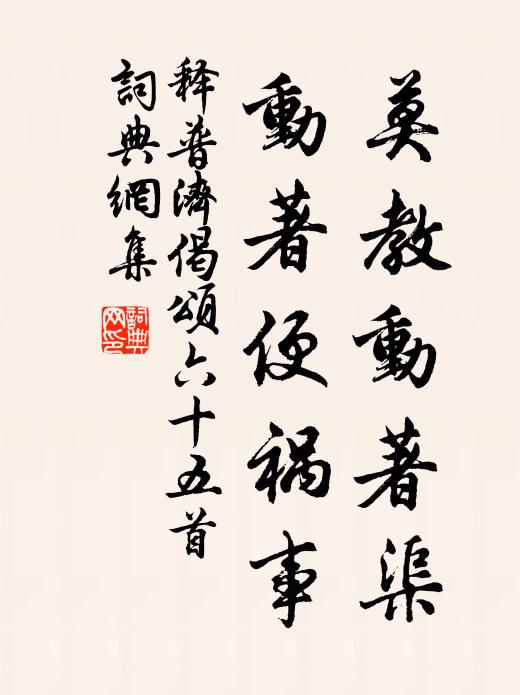 莫教動著渠
動著便禍事
释普濟偈頌六十五首
詞典網集
詞典網印